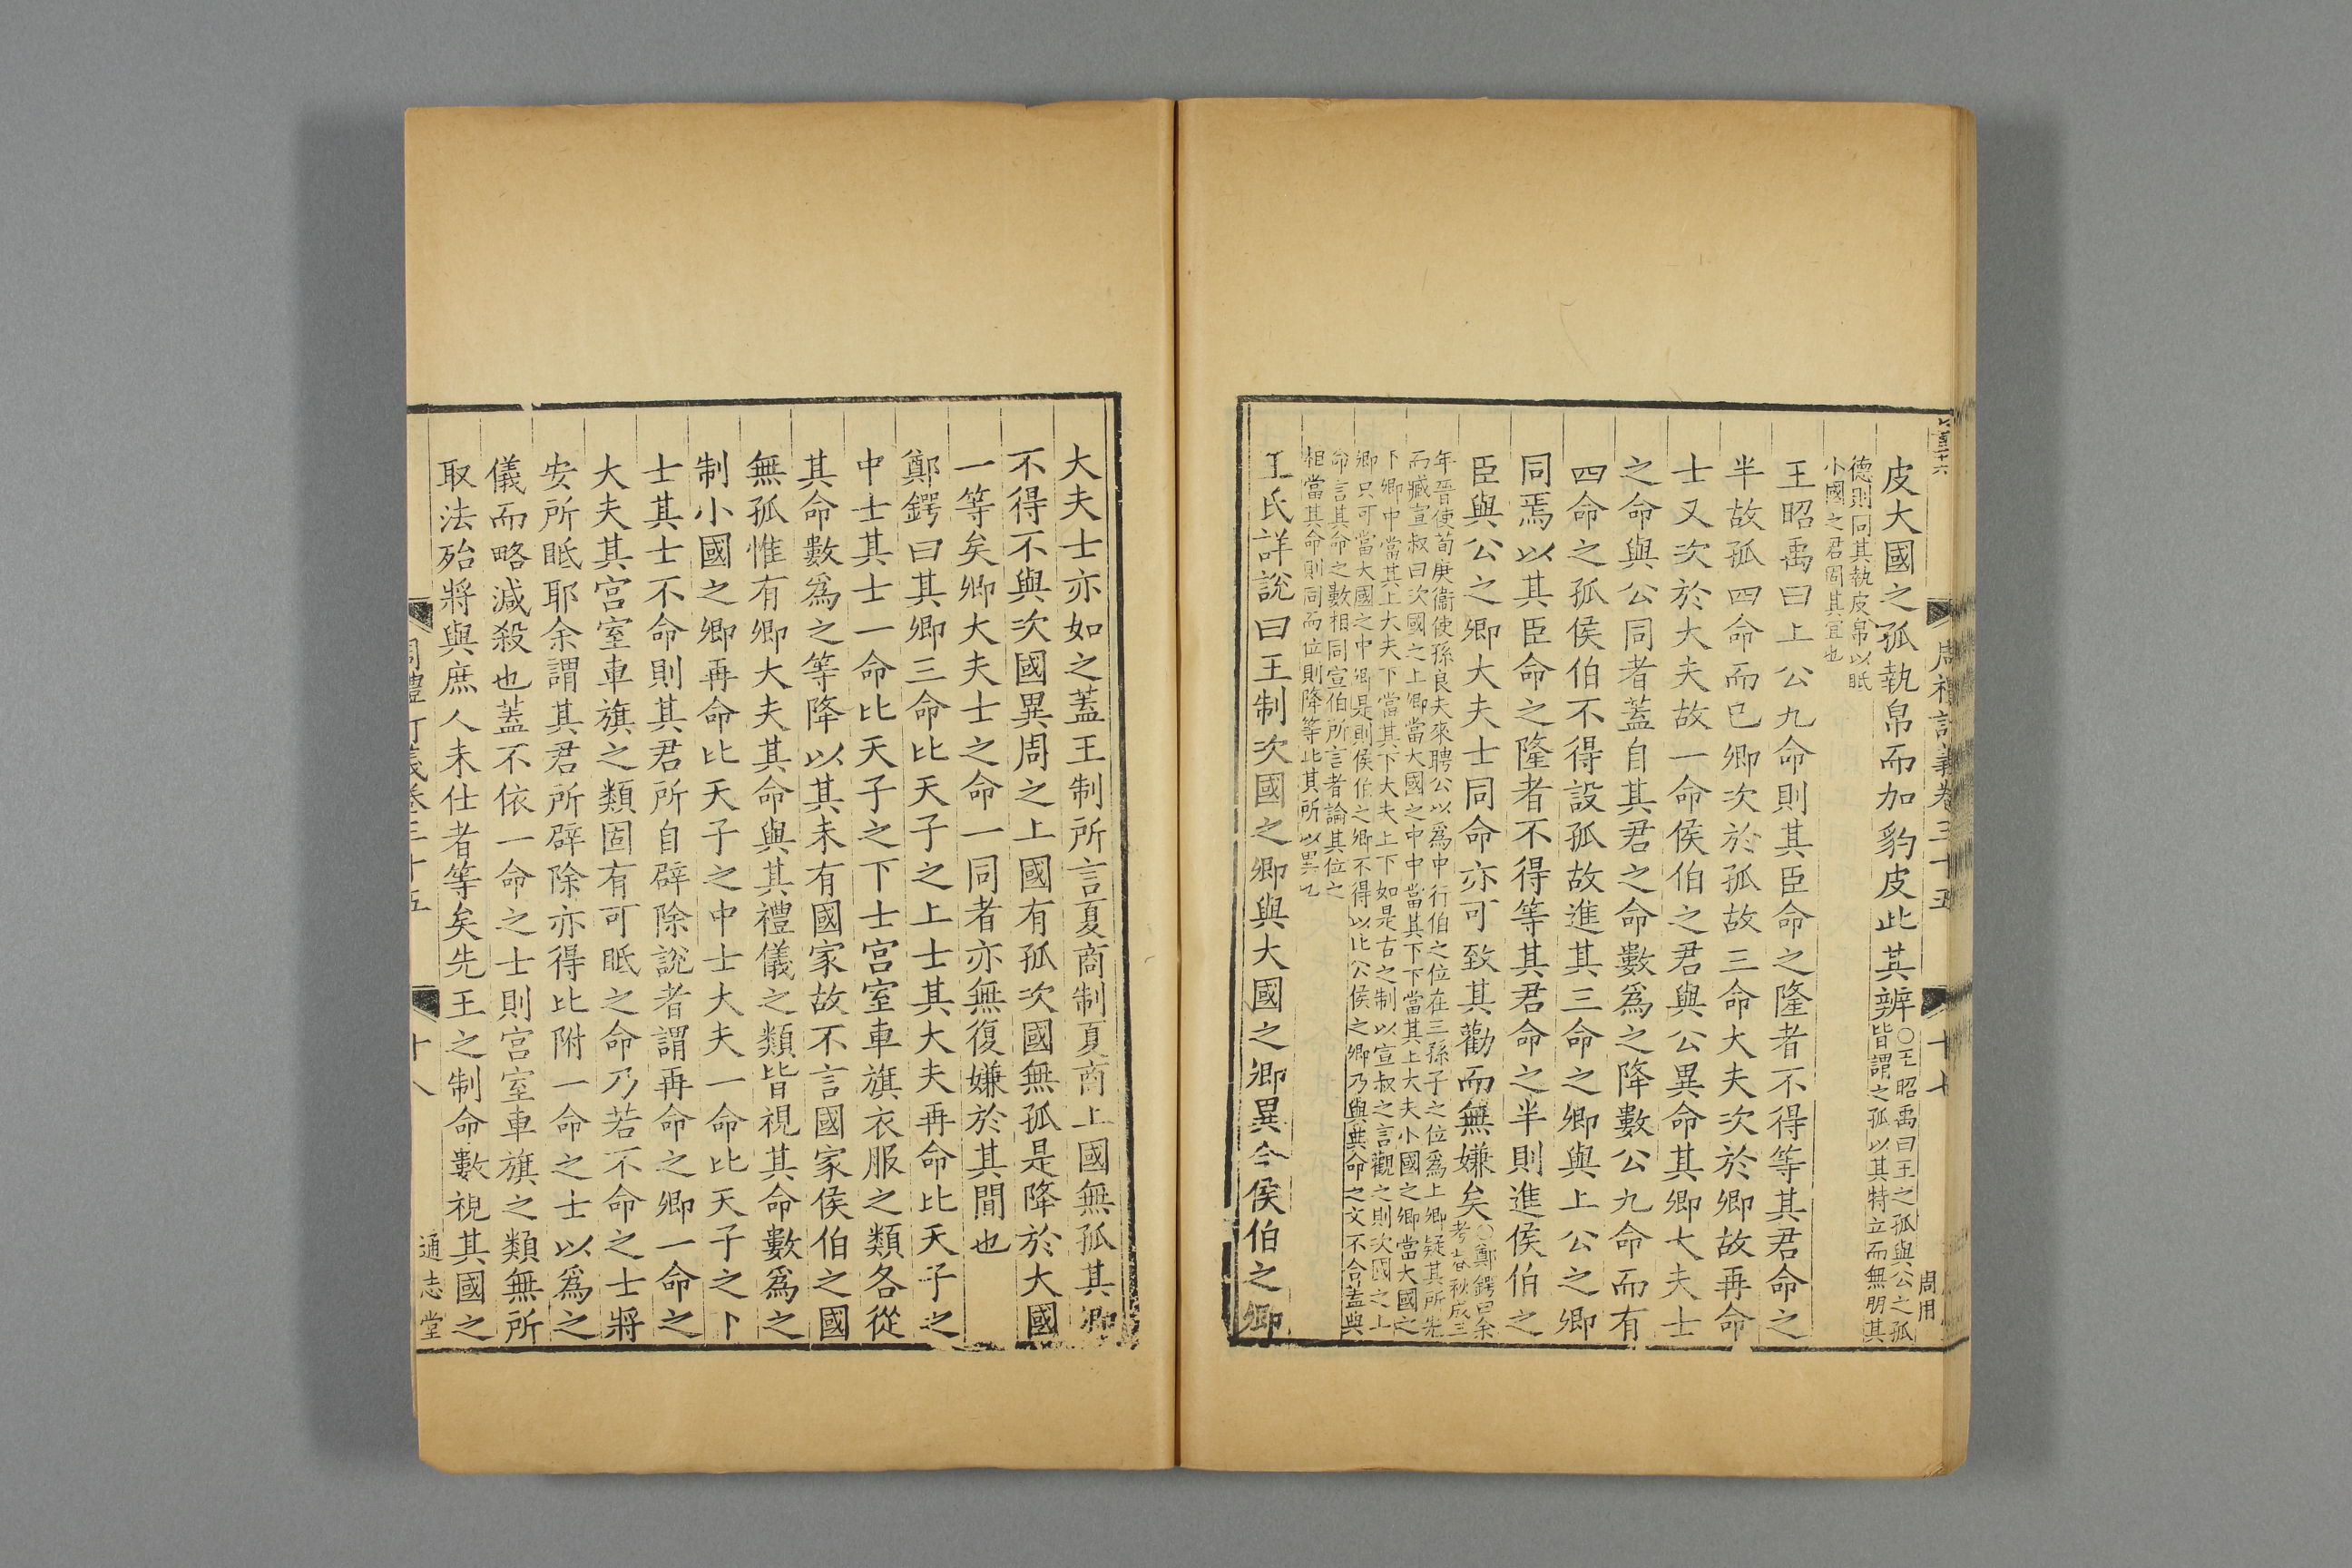 周禮訂義卷三十五
十七
周用
皮大國之孤執帛而加豹皮此其辨
○王昭禹曰王之孤與公之孤
皆謂之孤以其特立而無朋其
德則同其執皮帛以眂
小國之君固其宜也
王昭禹曰上公九命則其臣命之隆者不得等其君命之
半故孤四命而已卿次於孤故三命大夫次於卿故再命
士又次於大夫故一命侯伯之君與公異命其卿大夫士
之命與公同者蓋自其君之命數爲之降數公九命而有
四命之孤侯伯不得設孤故進其三命之卿與上公之卿
同焉以其臣命之隆者不得等其君命之半則進侯伯之
臣與公之卿大夫士同命亦可致其勸而無嫌矣
○鄭鍔曰余
考春秋成三
年晉使荀庚衞使孫良夫來聘公以爲中行伯之位在三孫子之位爲上卿疑其所先
而臧宣叔曰次國之上卿當大國之中中當其下下當其上大夫小國之卿當大國之
下卿中當其上大夫下當其下大夫上下如是古之制以宣叔之言觀之則次國之上
卿只可當大國之中卿是則侯伯之卿不得以比公侯之卿乃與典命之文不合蓋典
命言其命之數相同宣伯所言者論其位之
相當其命則同而位則降等此其所以異
王氏詳說曰王制次國之卿與大國之卿異今侯伯之卿
大夫士亦如之蓋王制所言夏商制夏商上國無孤其卿
不得不與次國異周之上國有孤次國無孤是降於大國
一等矣卿大夫士之命一同者亦無復嫌於其間也
鄭鍔曰其卿三命比天子之上士其大夫再命比天子之
中士其士一命比天子之下士宫室車旗衣服之類各從
其命數爲之等降以其未有國家故不言國家侯伯之國
無孤惟有卿大夫其命與其禮儀之類皆視其命數爲之
制小國之卿再命比天子之中士大夫一命比天子之下
士其士不命則其君所自辟除說者謂再命之卿一命之
大夫其宫室車旗之類固有可眡之命乃若不命之士將
安所眡耶余謂其君所辟除亦得比附一命之士以爲之
儀而略減殺也蓋不依一命之士則宫室車旗之類無所
取法殆將與庶人未仕者等矣先王之制命數視其國之
十八
通志堂